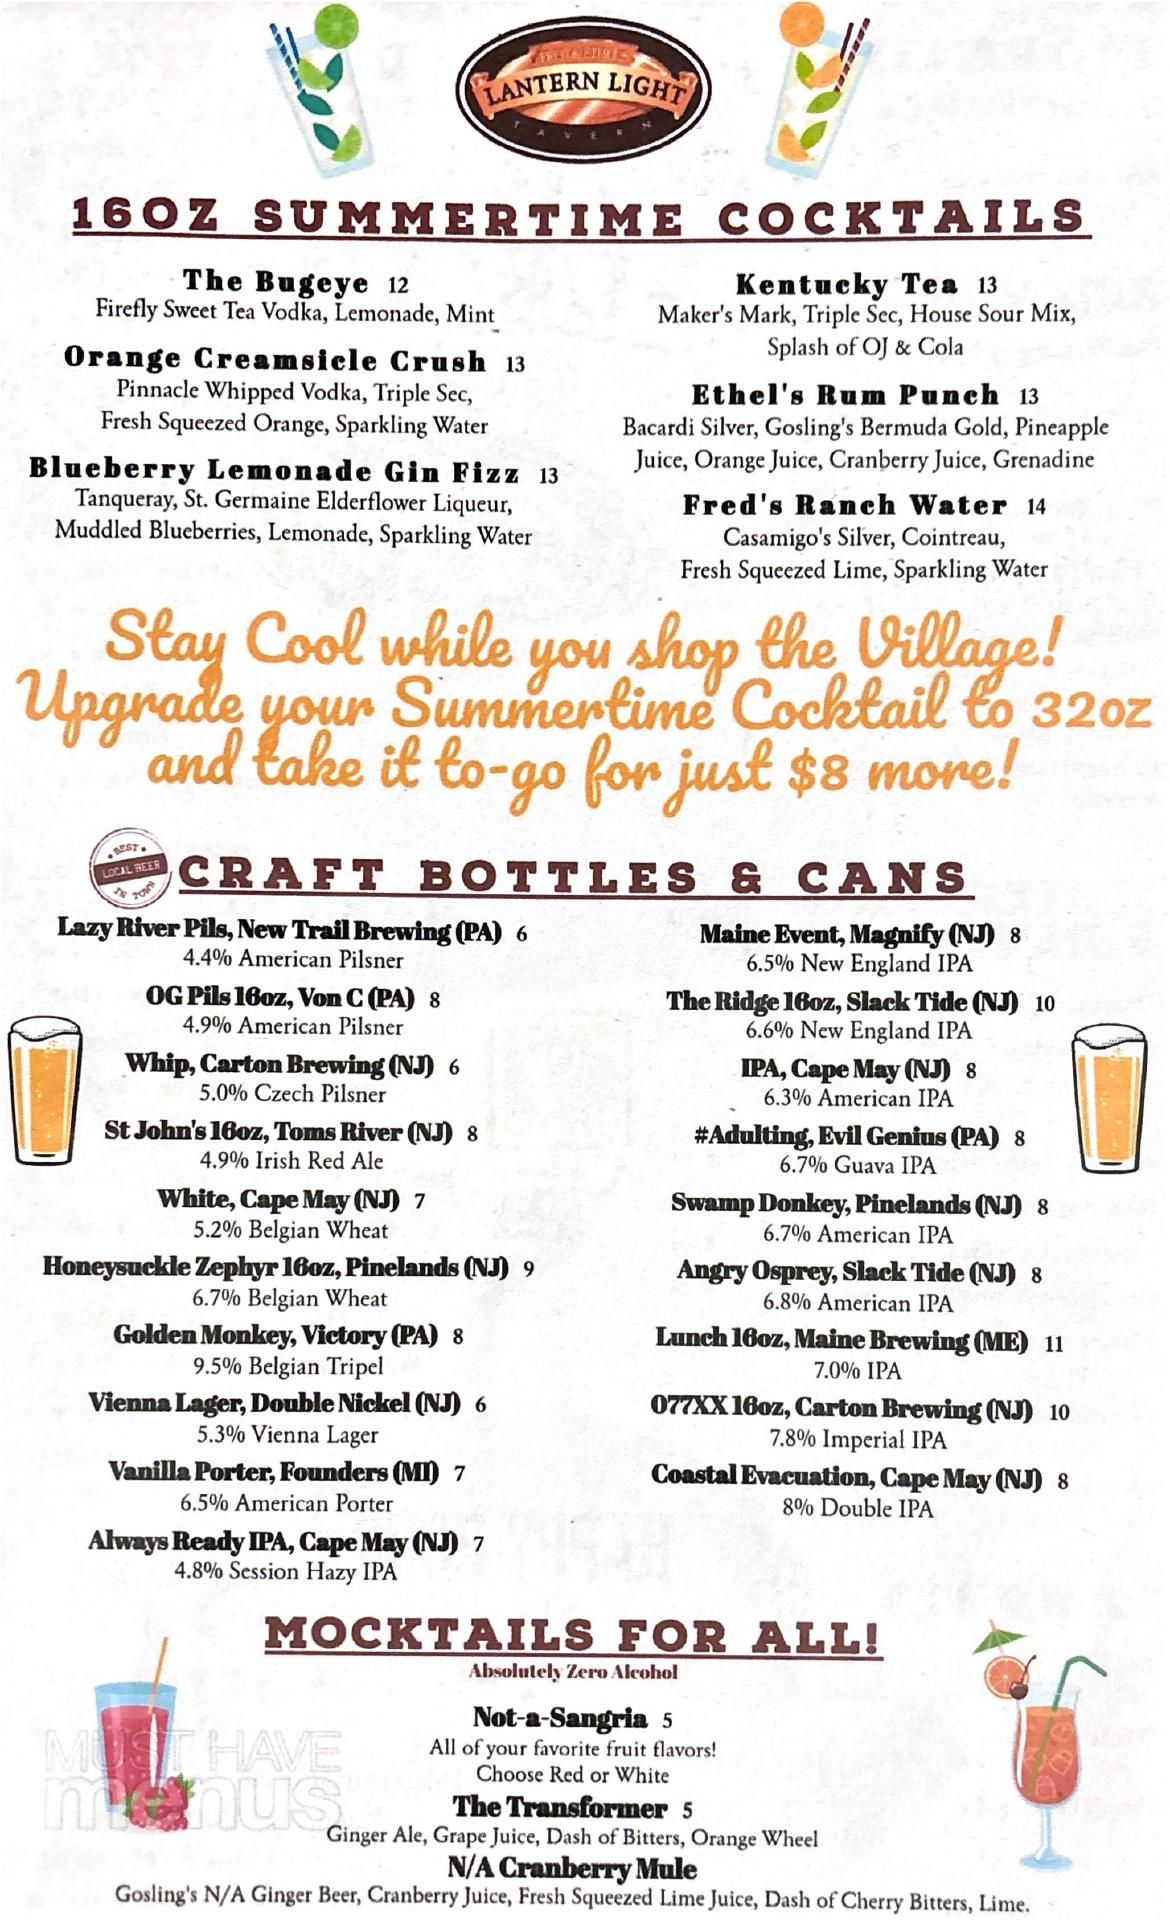 LANTERN LIGHT
TAVERN
16OZ SUMMERTIME COCKTAILS
The Bugeye 12
Firefly Sweet Tea Vodka, Lemonade, Mint
Orange Creamsicle Crush 13
Pinnacle Whipped Vodka, Triple Sec,
Fresh Squeezed Orange, Sparkling Water
Blueberry Lemonade Gin Fizz 13
Tanqueray, St. Germaine Elderflower Liqueur,
Muddled Blueberries, Lemonade, Sparkling Water
Kentucky Tea 13
Maker's Mark, Triple Sec, House Sour Mix,
Splash of OJ & Cola
Ethel's Rum Punch 13
Bacardi Silver, Gosling's Bermuda Gold, Pineapple
Juice, Orange Juice, Cranberry Juice, Grenadine
Fred's Ranch Water 14
Casamigo's Silver, Cointreau,
Fresh Squeezed Lime, Sparkling Water
Stay Cool while you shop the Village!
Upgrade your Summertime Cocktail to 32oz
and take it to-go for just $8 more!
BEST
LOCAL BEER
IN TOWN
CRAFT BOTTLES & CANS
Lazy River Pils, New Trail Brewing (PA) 6
4.4% American Pilsner
OG Pils 16oz, Von C (PA) 8
4.9% American Pilsner
Whip, Carton Brewing (NJ) 6
5.0% Czech Pilsner
St John's 16oz, Toms River (NJ) 8
4.9% Irish Red Ale
White, Cape May (NJ) 7
5.2% Belgian Wheat
Honeysuckle Zephyr 16oz, Pinelands (NJ) 9
6.7% Belgian Wheat
Golden Monkey, Victory (PA) 8
9.5% Belgian Tripel
Vienna Lager, Double Nickel (NJ) 6
5.3% Vienna Lager
Vanilla Porter, Founders (MI) 7
6.5% American Porter
Always Ready IPA, Cape May (NJ) 7
4.8% Session Hazy IPA
Maine Event, Magnify (NJ) 8
6.5% New England IPA
The Ridge 16oz, Slack Tide (NJ) 10
6.6% New England IPA
IPA, Cape May (NJ) 8
6.3% American IPA
#Adulting, Evil Genius (PA) 8
6.7% Guava IPA
Swamp Donkey, Pinelands (NJ) 8
6.7% American IPA
Angry Osprey, Slack Tide (NJ) 8
6.8% American IPA
Lunch 16oz, Maine Brewing (ME) 11
7.0% IPA
077XX 16oz, Carton Brewing (NJ) 10
7.8% Imperial IPA
Coastal Evacuation, Cape May (NJ) 8
8% Double IPA
MOCKTAILS FOR ALL!
Absolutely Zero Alcohol
Not-a-Sangria 5
All of your favorite fruit flavors!
Choose Red or White
The Transformer 5
Ginger Ale, Grape Juice, Dash of Bitters, Orange Wheel
N/A Cranberry Mule
Gosling's N/A Ginger Beer, Cranberry Juice, Fresh Squeezed Lime Juice, Dash of Cherry Bitters, Lime.
MUST HAVE
menus